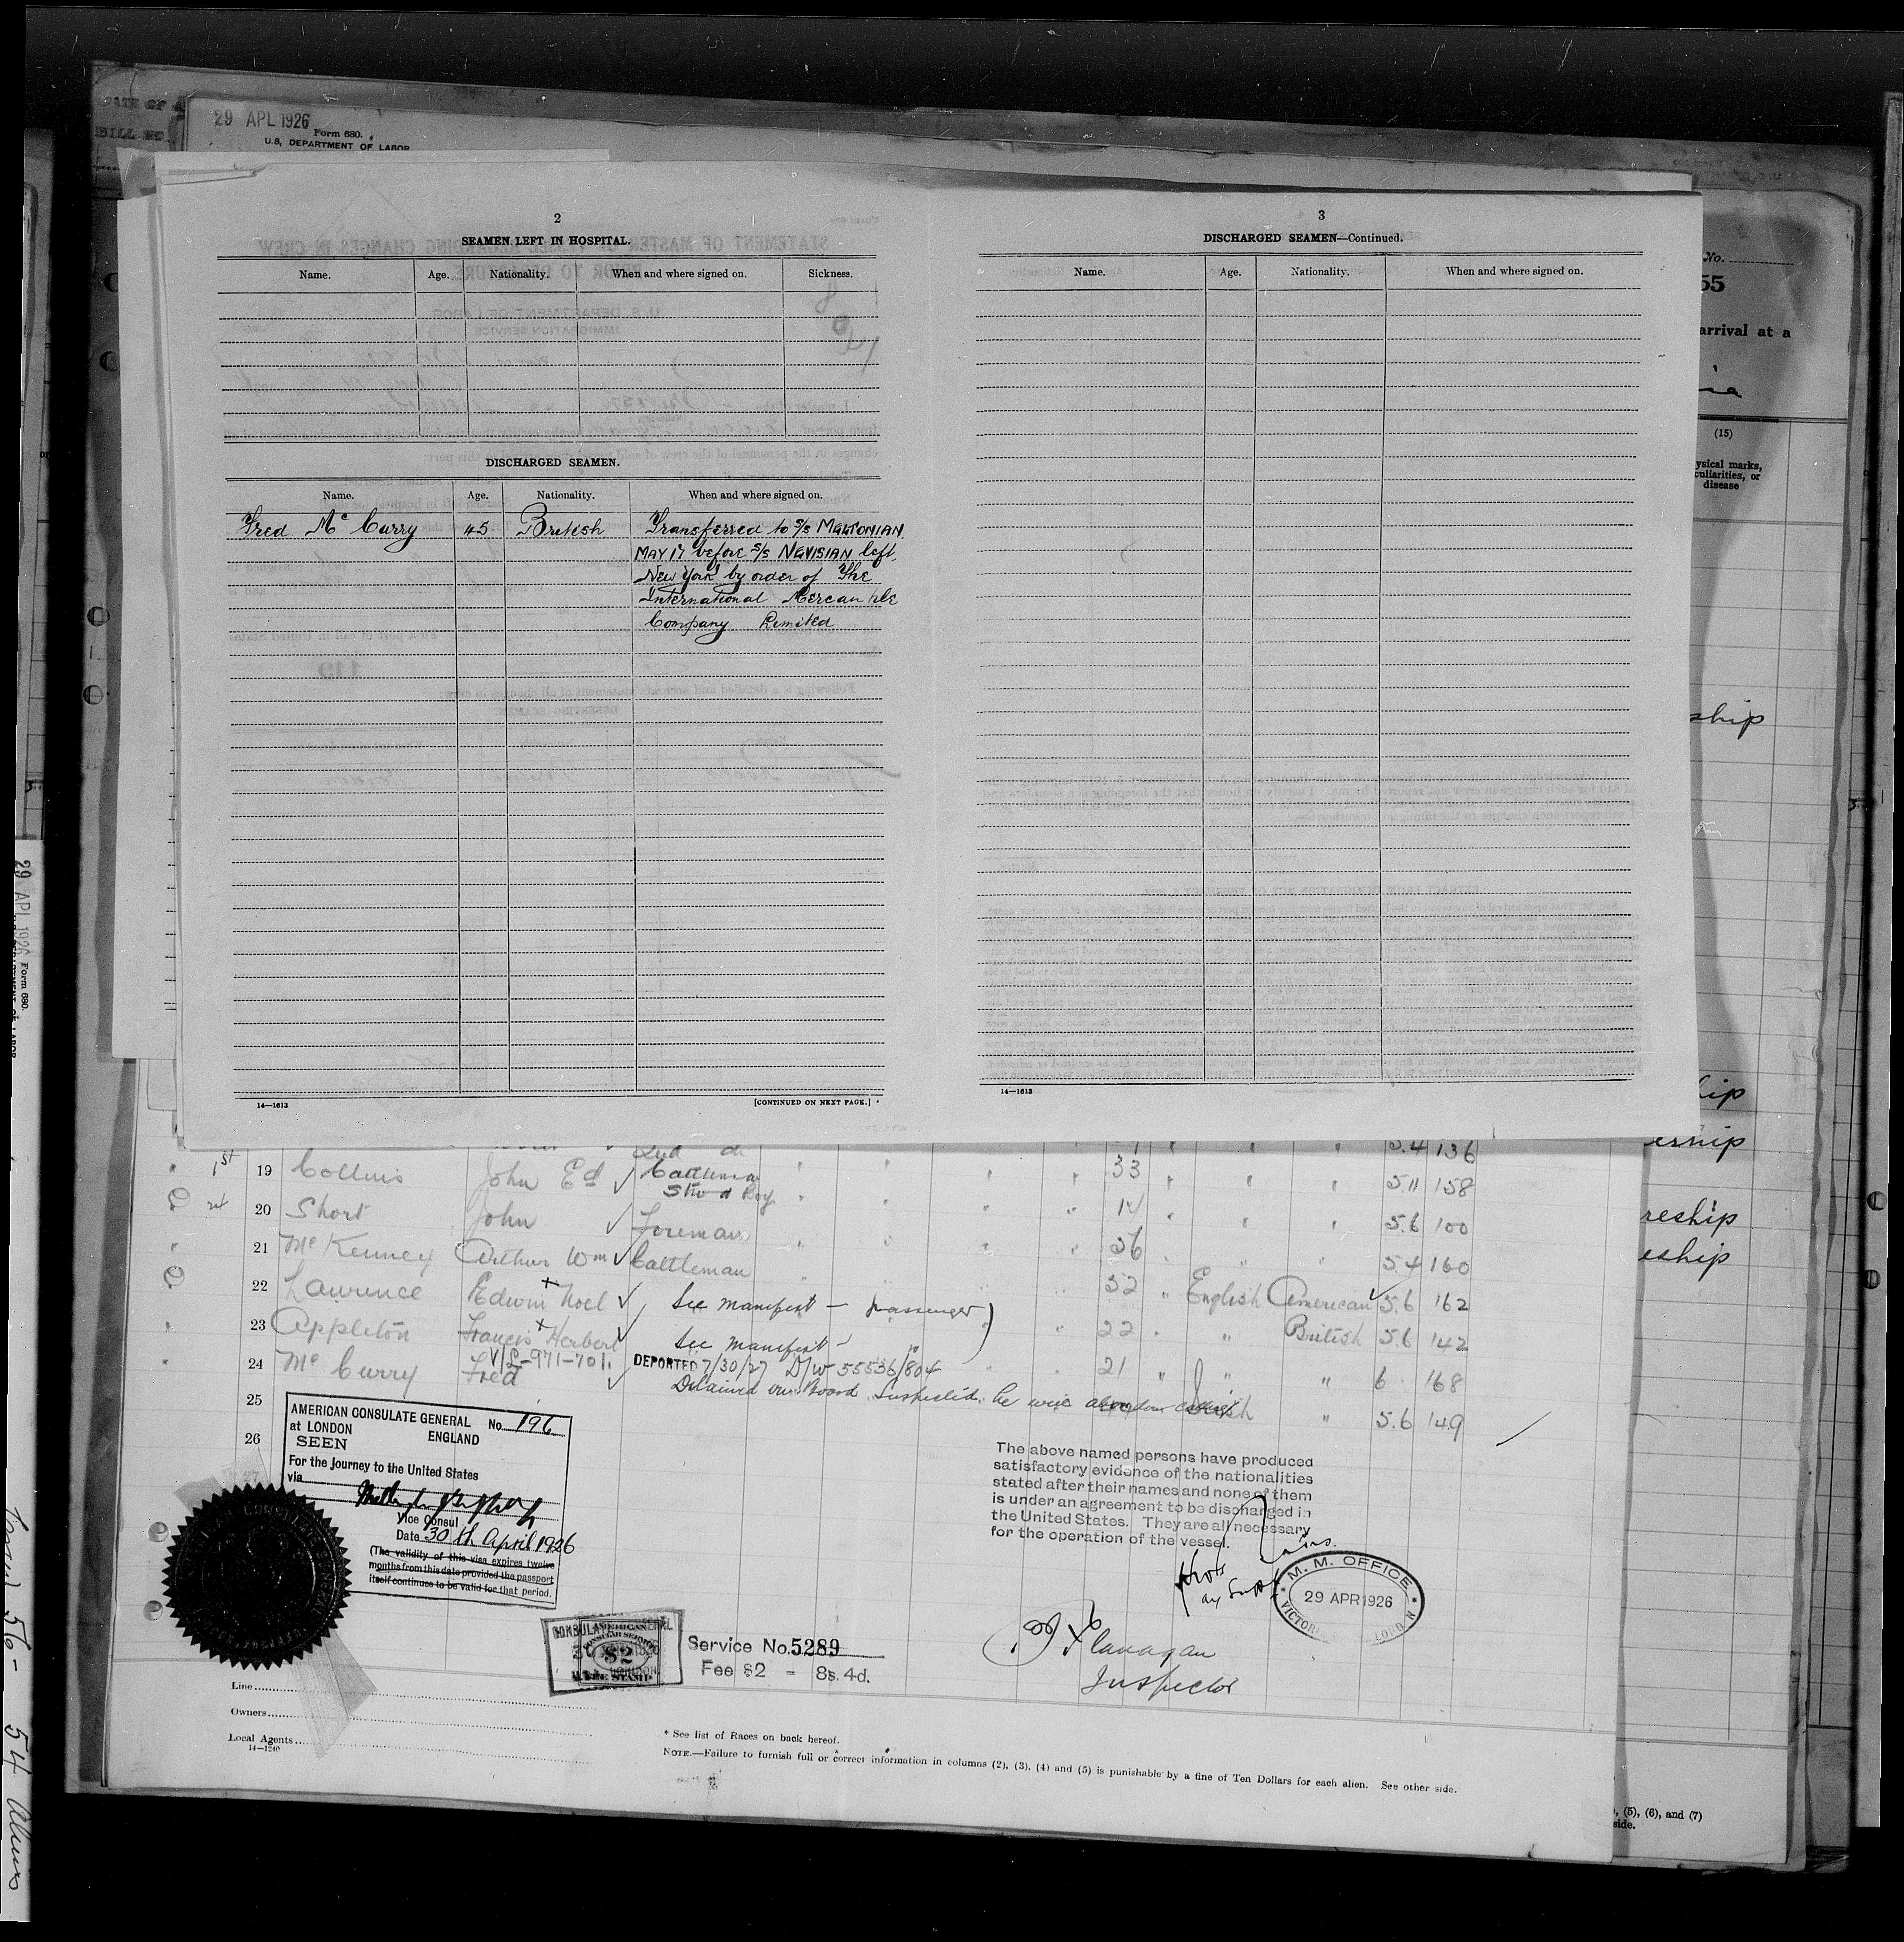 29 APL 1926
Form 680.
U.S. DEPARTMENT OF LABOR
2
SEAMEN LEFT IN HOSPITAL.
Name. Age. Nationality. When and where signed on. Sickness.
DISCHARGED SEAMEN.
Name. Age. Nationality. When and where signed on.
Fred Mc Curry 45 British Transferred to S/S MELTONIAN
MAY 17 before S/S NEVISIAN left
New York by order of The
International Mercantile
Company Limited
14—1613 [CONTINUED ON NEXT PAGE.]
3
DISCHARGED SEAMEN—Continued.
Name. Age. Nationality. When and where signed on.
14—1613
No.
55
arrival at a
(15)
ysical marks,
culiarities, or
disease
ship
ship
reship
eship
5.4 136
1st 19 Collins John Ed Cattleman 33 5 11 158
20 Short John 14 5.6 100
21 McKenney Arthur Wm Foreman Cattleman 36 5.4 160
22 Lawrence Edwin Noel See manifest — passenger 32 English American 5.6 162
23 Appleton Francis Herbert See manifest — 22 " British 5.6 142
V/L-971-701.
24 Mc Curry Fred DEPORTED 7/30/27 D/W 55536/804 21 " " 6 168
Detained on Board Suspected he will abandon calling " 5.6 149
25
26
27
AMERICAN CONSULATE GENERAL No. 196
at LONDON ENGLAND
SEEN
For the Journey to the United States
via
Vice Consul
Date 30th April 1926
(The validity of this visa expires twelve
months from this date provided the passport
itself continues to be valid for that period.
The above named persons have produced
satisfactory evidence of the nationalities
stated after their names and none of them
is under an agreement to be discharged in
the United States. They are all necessary
for the operation of the vessel.
M. M. OFFICE
29 APR 1926
Flanagan
Inspector
AMERICAN
CONSULAR SERVICE
$2
FEE STAMP
Service No. 5289
Fee $2 = 8s. 4d.
Line
Owners
Local Agents
14—1240
* See list of Races on back hereof.
NOTE.—Failure to furnish full or correct information in columns (2), (3), (4) and (5) is punishable by a fine of Ten Dollars for each alien. See other side.
, (5), (6), and (7)
side.
29 APL 1926
Form 680.